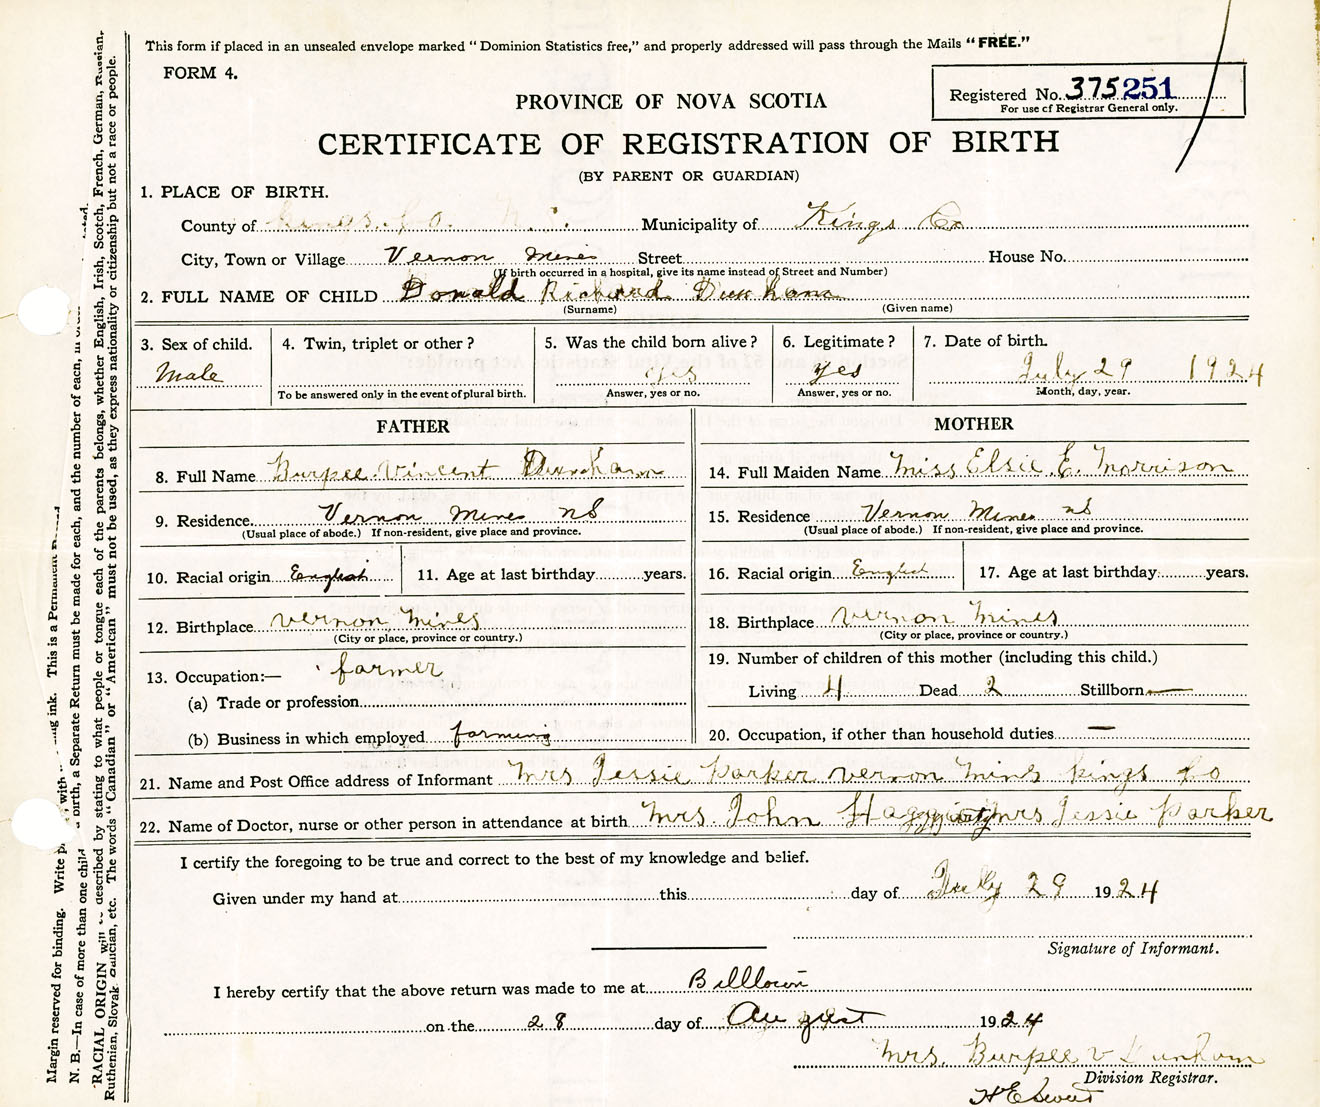 This form if placed in an unsealed envelope marked "Dominion Statistics free," and properly addressed will pass through the Mails "FREE."
FORM 4.
Registered No. 375251
For use of Registrar General only.
PROVINCE OF NOVA SCOTIA
CERTIFICATE OF REGISTRATION OF BIRTH
(BY PARENT OR GUARDIAN)
1. PLACE OF BIRTH.
County of Kings Co. N.S. Municipality of Kings Co
City, Town or Village Vernon Mines Street House No.
(If birth occurred in a hospital, give its name instead of Street and Number)
2. FULL NAME OF CHILD Donald Richard Durkham
(Surname) (Given name)
3. Sex of child. 4. Twin, triplet or other? 5. Was the child born alive? 6. Legitimate? 7. Date of birth.
Male yes yes July 29 1924
To be answered only in the event of plural birth. Answer, yes or no. Answer, yes or no. Month, day, year.
FATHER
8. Full Name Burpee Vincent Dunham
9. Residence Vernon Mines NS
(Usual place of abode.) If non-resident, give place and province.
10. Racial origin English 11. Age at last birthday years.
12. Birthplace Vernon Mines
(City or place, province or country.)
13. Occupation:— farmer
(a) Trade or profession
(b) Business in which employed farming
MOTHER
14. Full Maiden Name Miss Elsie E. Morrison
15. Residence Vernon Mines NS
(Usual place of abode.) If non-resident, give place and province.
16. Racial origin English 17. Age at last birthday years.
18. Birthplace Vernon Mines
(City or place, province or country.)
19. Number of children of this mother (including this child.)
Living 4 Dead 2 Stillborn —
20. Occupation, if other than household duties —
21. Name and Post Office address of Informant Mrs Jessie Parker Vernon Mins Kings Co
22. Name of Doctor, nurse or other person in attendance at birth Mrs John Mrs Jessie Parker
I certify the foregoing to be true and correct to the best of my knowledge and belief.
Given under my hand at this day of July 29 1924
Signature of Informant.
I hereby certify that the above return was made to me at Billtown
on the 28 day of August 1924
Mrs. Burpee V Dunham
Division Registrar.
Margin reserved for binding. Write with ink. This is a Permanent
N. B.—In case of more than one child birth, a Separate Return must be made for each, and the number of each, in
RACIAL ORIGIN will be described by stating to what people or tongue each of the parents belongs, whether English, Irish, Scotch, French, German, Russian,
Ruthenian, Slovak, Galician, etc. The words "Canadian" or "American" must not be used, as they express nationality or citizenship but not a race or people.